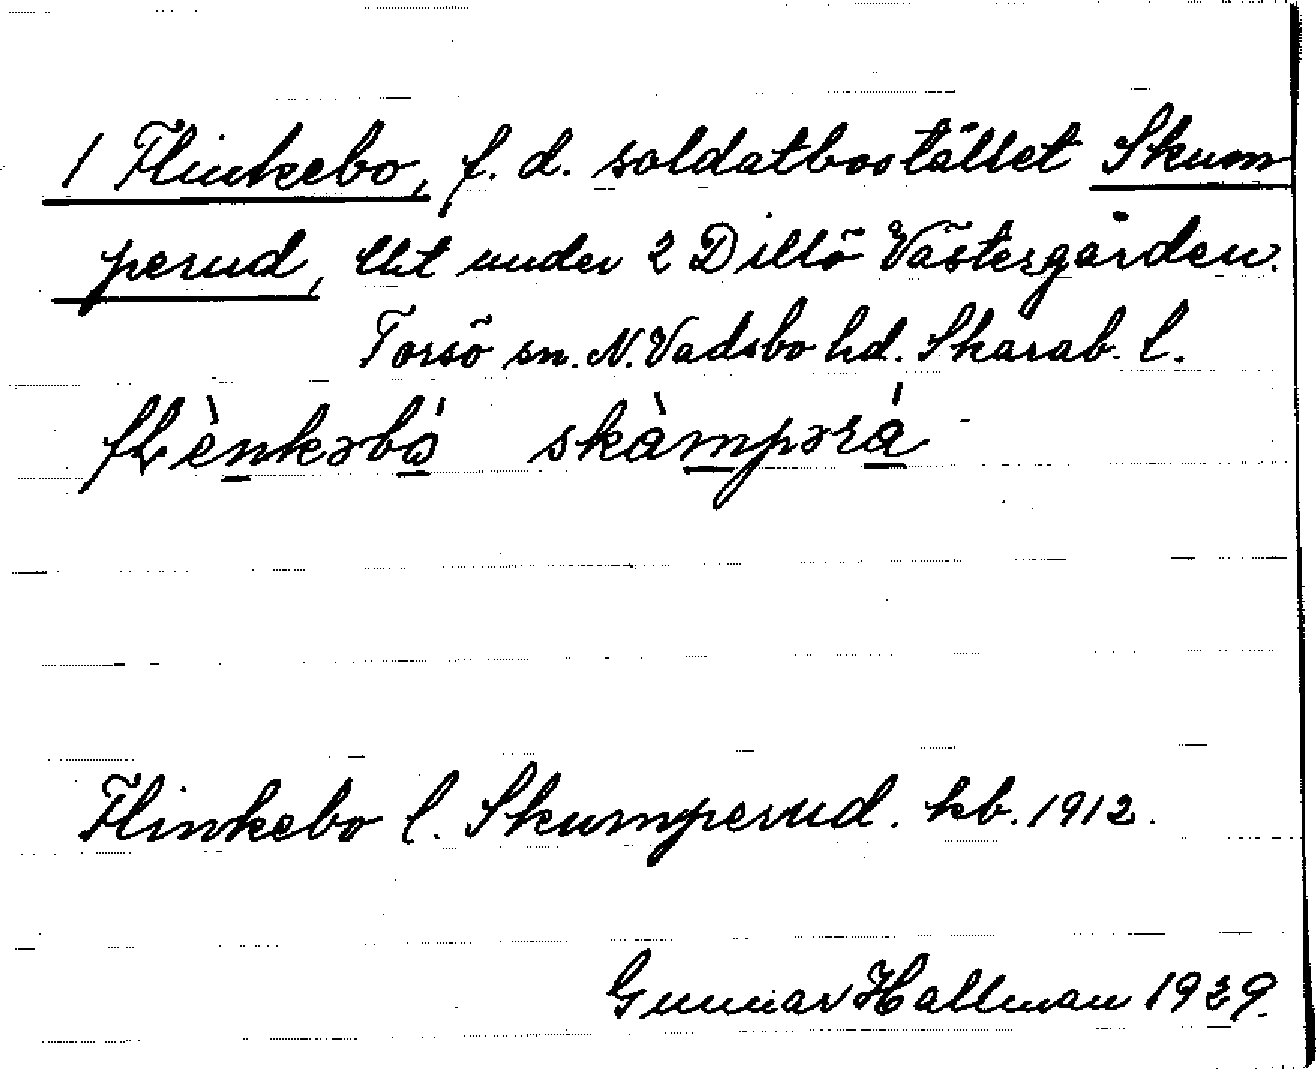 1 Flinkebo, f. d. soldatbostället Skum
perud, lht under 2 Dillö Västergården.
Torsö sn. N. Vadsbo hd. Skarab. l.
fLènkəbó skàmpərá
Flinkebo l. Skumperud. kb. 1912.
Gunnar Hallman 1939.